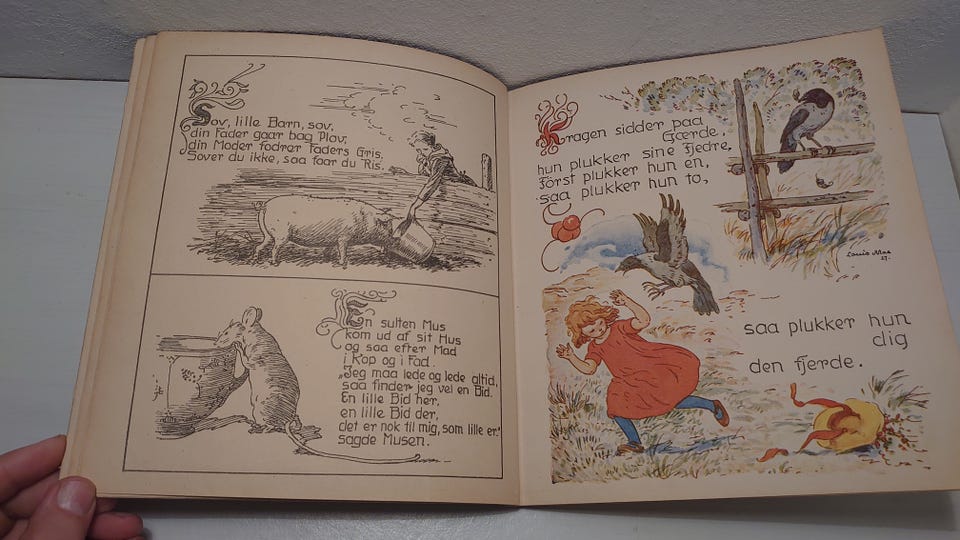 Sov, lille Barn, sov,
din Fader gaar bag Plov,
din Moder fodrer Faders Gris.
Sover du ikke, saa faar du Ris.
En sulten Mus
kom ud af sit Hus
og saa efter Mad
i Kop og i Fad.
"Jeg maa lede og lede altid,
saa finder jeg vel en Bid.
En lille Bid her,
en lille Bid der,
det er nok til mig, som lille er."
sagde Musen.
Kragen sidder paa
Gærde,
hun plukker sine Fjedre,
først plukker hun en,
saa plukker hun to,
Louis Moe
27.
saa plukker hun
dig
den fjerde.